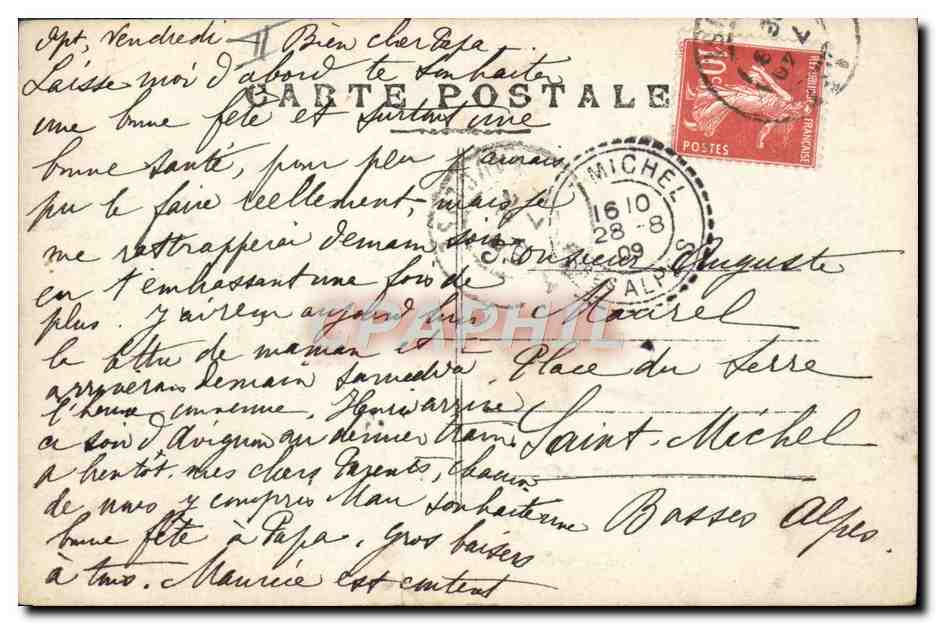 Apt, Vendredi II Bien cher Papa.
Laisse moi d'abord te souhaiter
CARTE POSTALE
une bonne fête et surtout une
bonne santé, pour peu j'aurais
pu le faire réellement, mais je
me rattrapperai demain soir
en t'embrassant une fois de
plus. J'ai reçu aujourd'hui
la lettre de maman et
arriverai demain samedi à
l'heure convenue, Henri arrive
ce soir d'Avignon au dernier train.
a bientôt mes chers Parents, chacun
de nous y compris Mau souhaite une
bonne fête à Papa. Gros baisers
à tous. Maurice est content
Monsieur Auguste
Maurel
Place du Serre
Saint-Michel
Basses Alpes.
10c
REPUBLIQUE FRANÇAISE
POSTES
MICHEL
16 10
28 -8
09
S ALPES
CPAPHIL